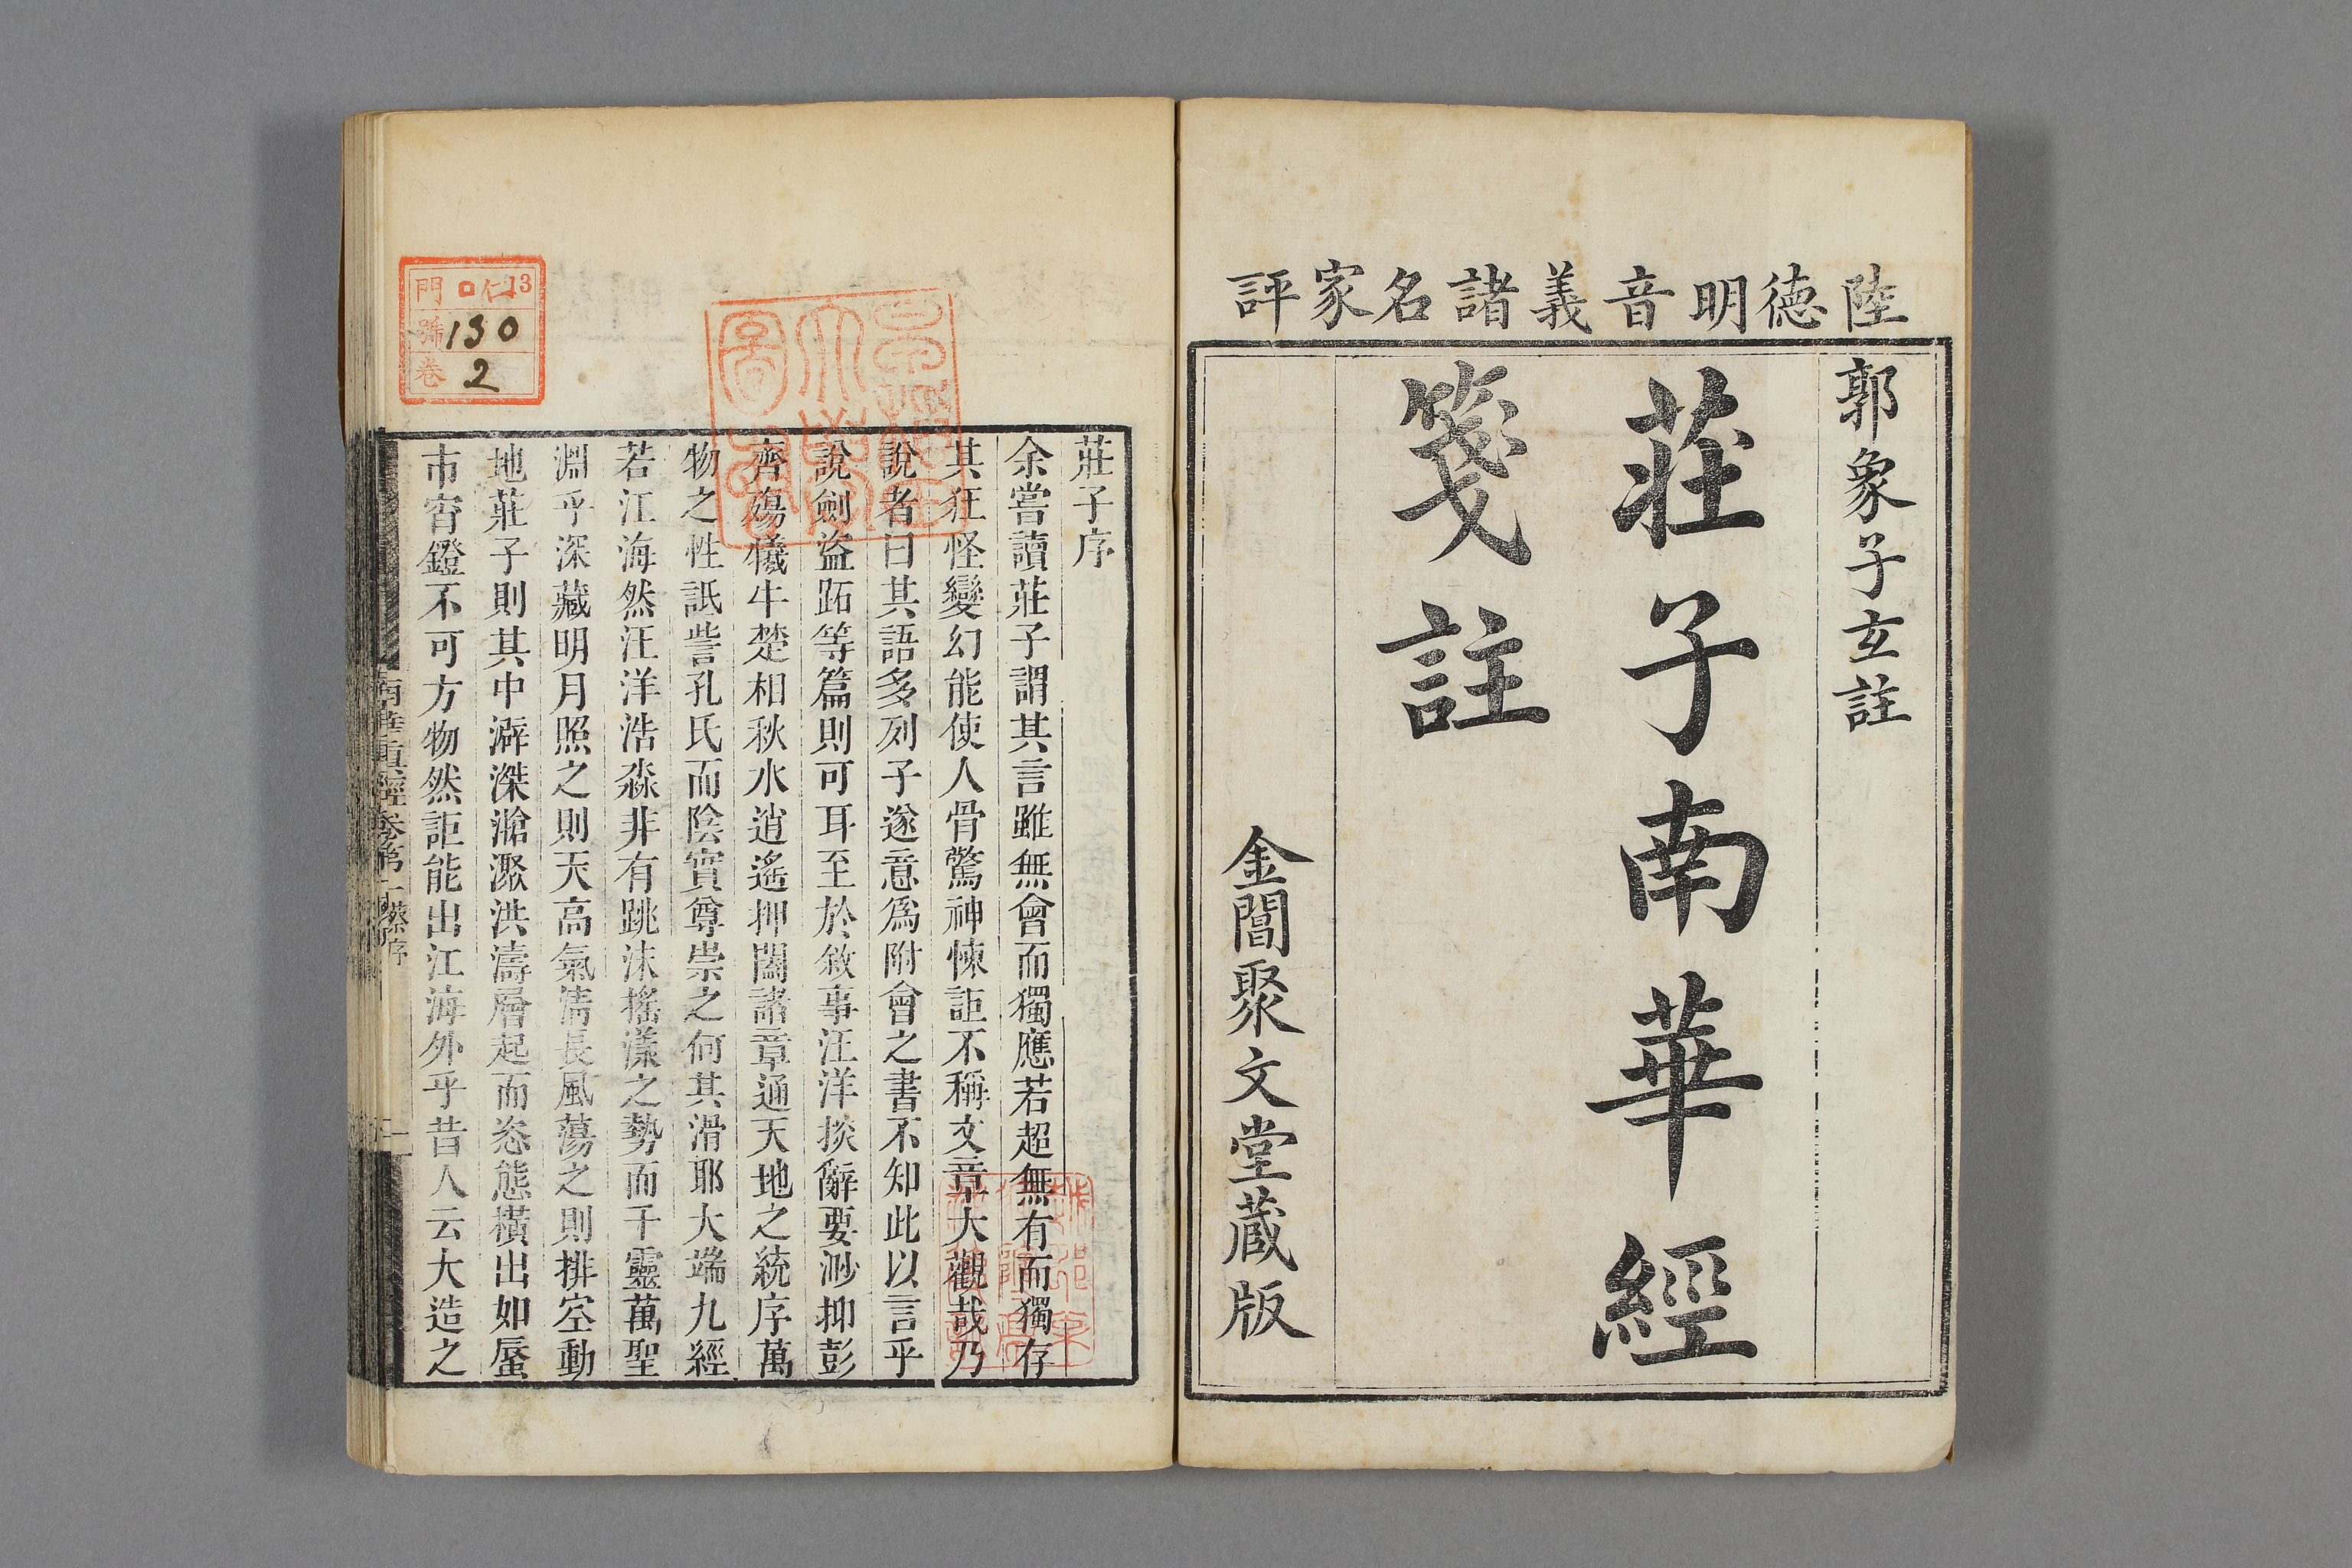 陸德明音義諸名家評
郭象子玄註
莊子南華經
箋註
金閶聚文堂藏版
莊子序
余嘗讀莊子謂其言雖無會而獨應若超無有而獨存
其狂怪變幻能使人骨驚神悚詎不稱文章大觀哉乃
說者曰其語多列子遂意爲附會之書不知此以言乎
說劍盜跖等篇則可耳至於敘事汪洋掞辭要渺抑彭
齊殤犧牛楚相秋水逍遙押闔諸章通天地之統序萬
物之性詆訾孔氏而陰實尊崇之何其滑耶大端九經
若江海然汪洋浩淼非有跳沫搖漾之勢而千靈萬聖
淵乎深藏明月照之則天高氣清長風蕩之則排空動
地莊子則其中澼滐滄漈洪濤層起而恣態橫出如蜃
市宵鐙不可方物然詎能出江海外乎昔人云大造之
南華真經卷第一 序
一
門 仁 13
號 130
卷 2